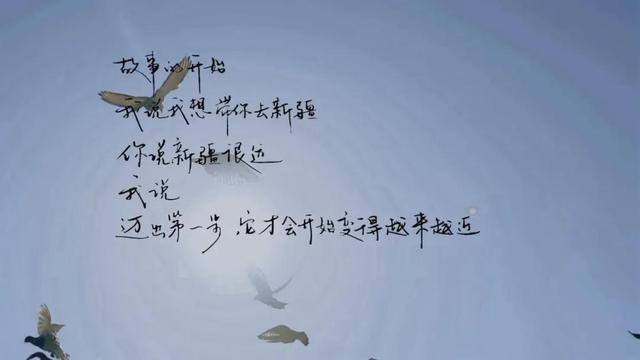 故事的开始
我说我想带你去新疆
你说新疆很远
我说
迈出第一步,它才会开始变得越来越近